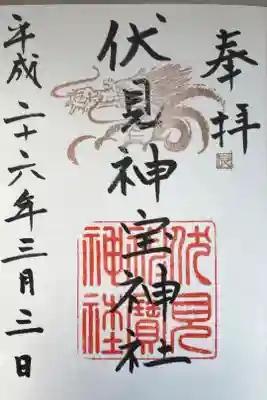 奉拝
伏見神宝神社
伏見
神寶
神社
平成二十六年三月三日